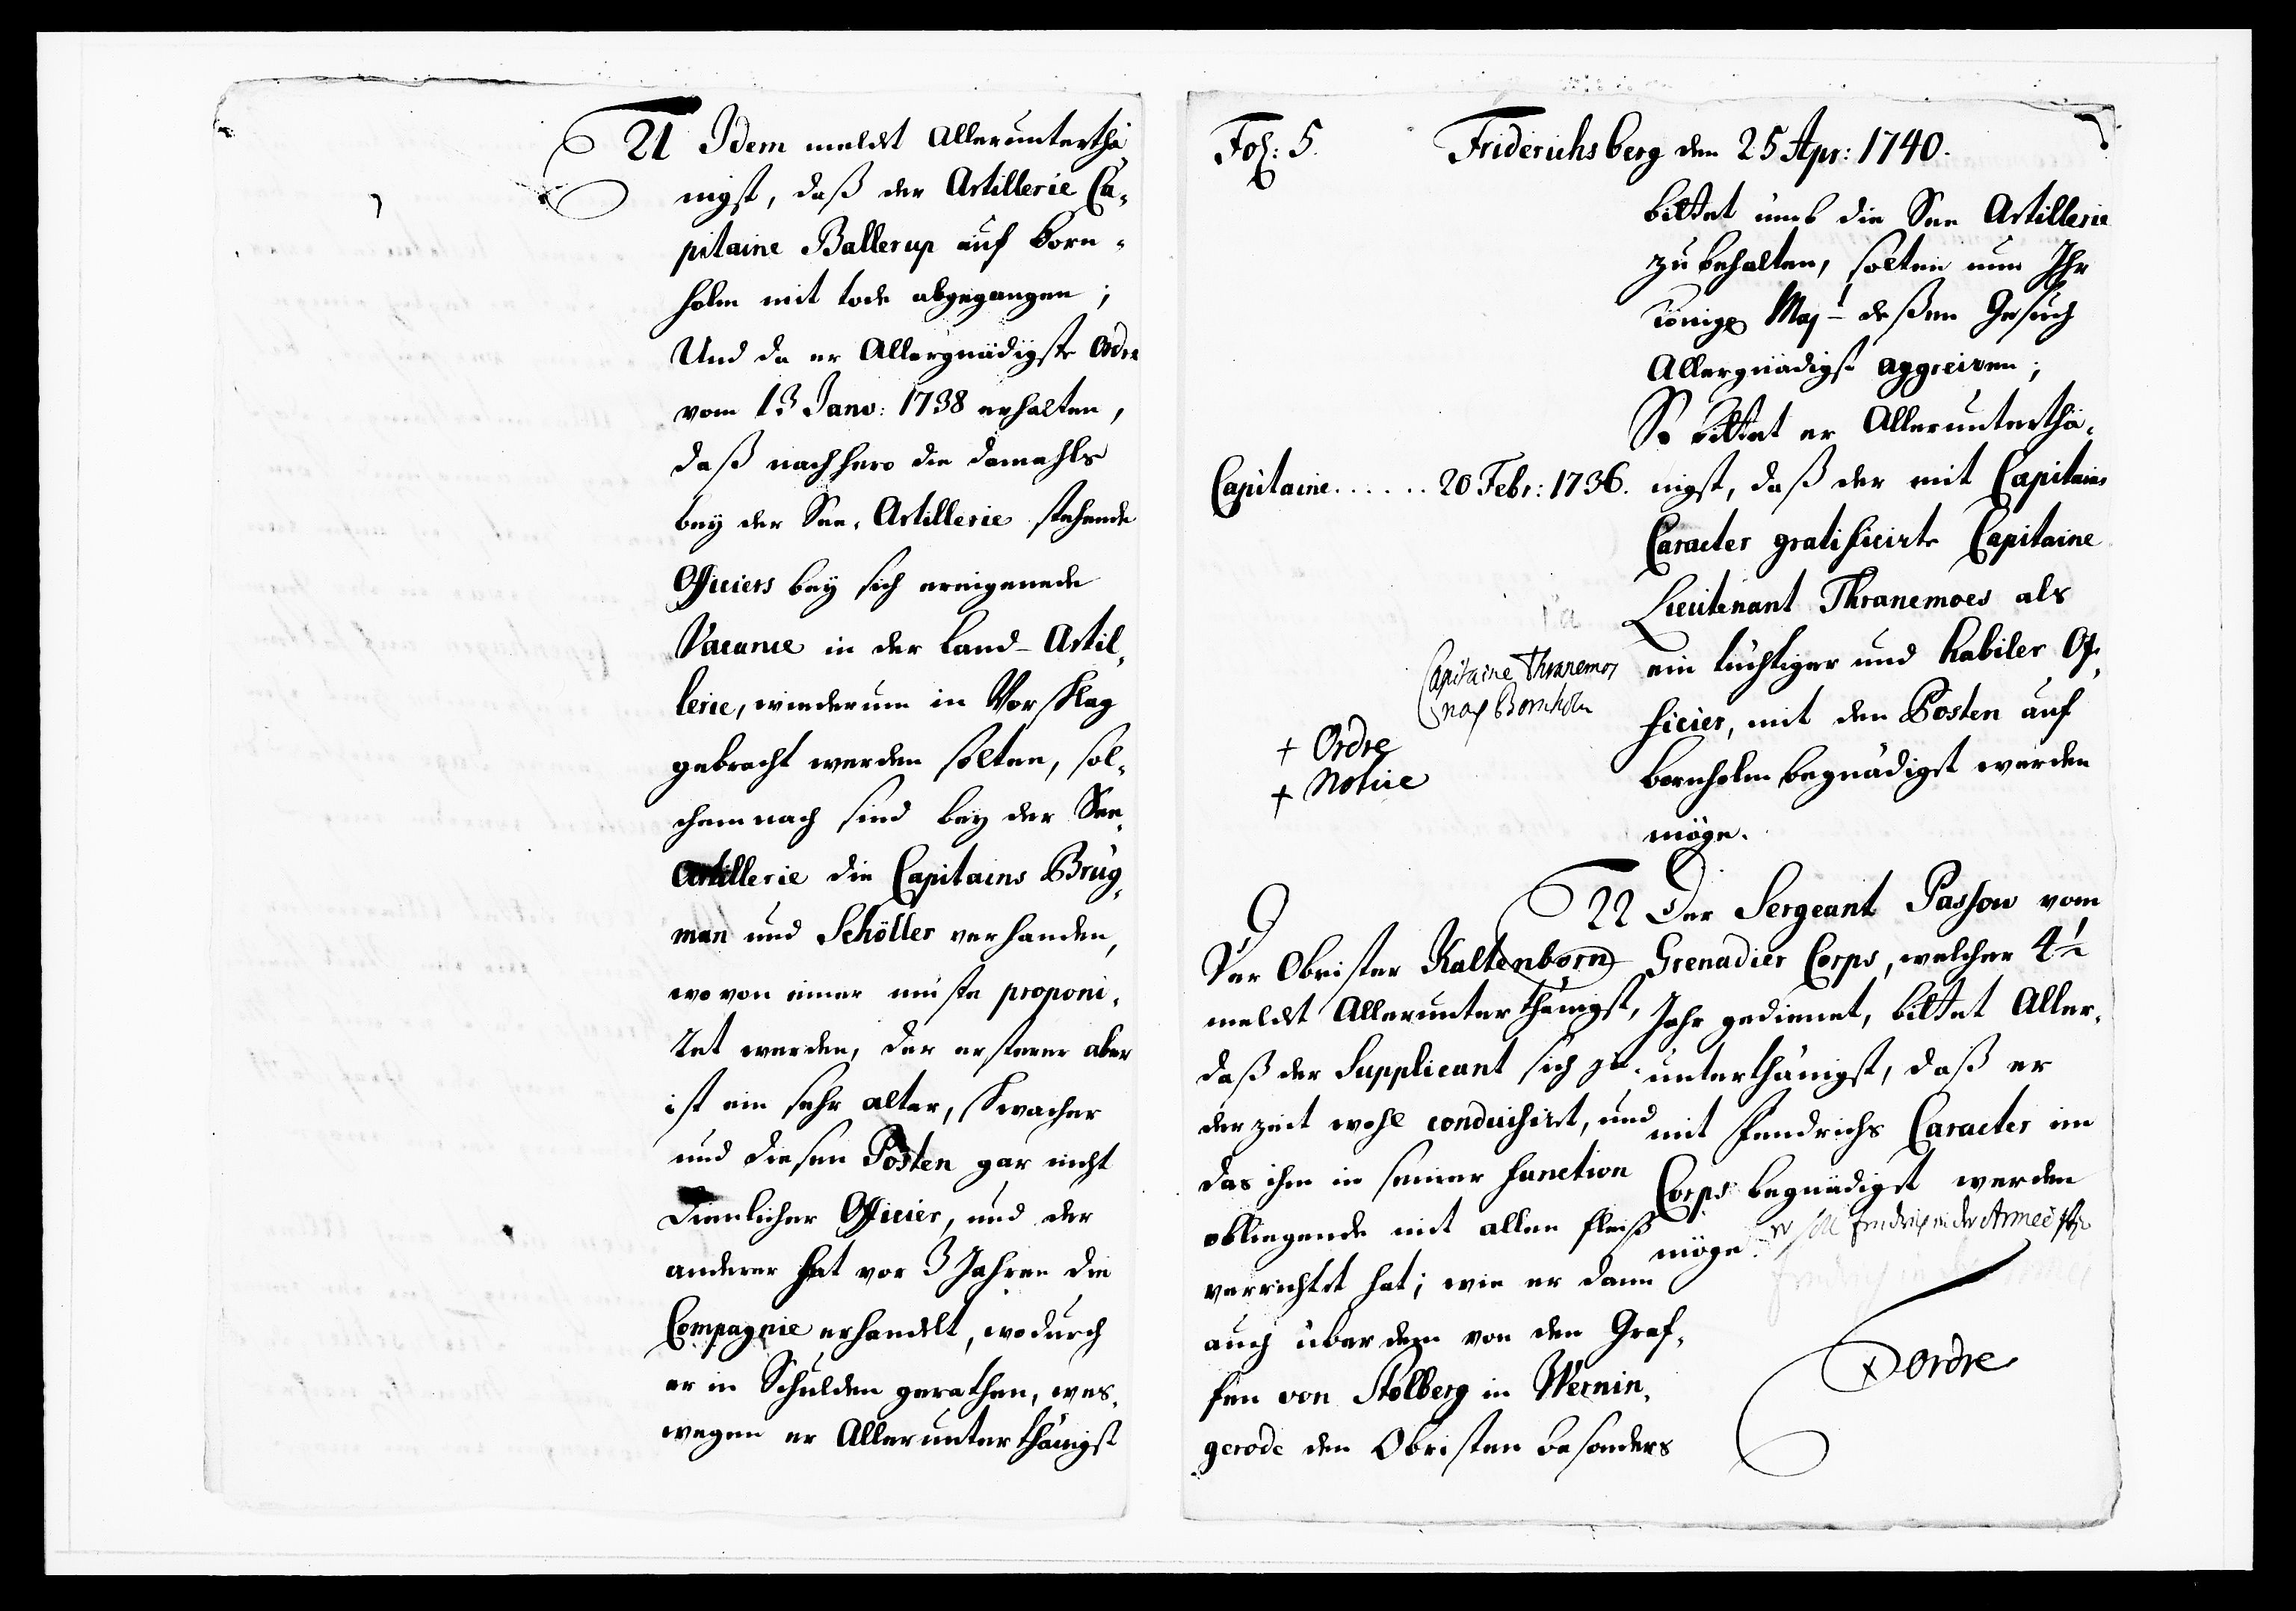 21 Idem meldt Allerunterthä
nigst, daß der Artillerie Ca-
pitaine Ballerup auf Born-
holm mit tode abgegangen;
Und da er Allergnädigste Ordre
vom 13 Janv: 1738 erhalten,
daß nachhero die damahls
bey der See-Artillerie stehende
Officiers bey sich ereigenede
Vacance in der Land-Artil-
lerie, wiederum in Vorschlag
gebracht werden solten, sol-
chemnach sind bey der See-
Artillerie die Capitains Brüg-
man und Schöller verhanden,
wovon einer müste proponi-
ret werden, der ersterer aber
ist ein sehr alter, schwacher
und diesen Posten gar nicht
dienlicher Officier, und der
anderer hat vor 3 Jahren die
Compagnie erhandelt, wodurch
er in Schulden gerathen, wes-
wegen er Allerunterthänigst
Fol: 5.
Friderichsberg den 25 Apr: 1740.
bittet umb die See Artillerie
zu behalten, solten nun Ihr
Königl Mayt deßen Gesuch
Allergnädigst aggreiren;
So bittet er Allerunterthä-
Capitaine...... 20 Febr: 1736. nigst, daß der mit Capitains
Caracter gratificirte Capitaine
Lieutenant Thranemoes als
ein tüchtiger und habiler Of-
ficier, mit den Posten auf
Bornholm begnädigt werden
möge.
Capitaine Thranemos
nach Bornholm
+ Ordre
+ Notice
22 Der Sergeant Passow vom
Grenadier Corps, welcher 4½
Jahr gedienet, bittet Aller-
unterthänigst, daß er
mit Fendrichs Caracter im
Corps begnädigt werden
möge. er soll fendrich in der Armee
x Ordre
Der Obrister Kaltenborn
meldt Allerunterthänigst,
daß der Supplicant sich je-
derzeit wohl conduisirt, und
das ihm in seiner function
obliegende mit allen fleiß
verrichtet hat; wie er dann
auch über dem von den Graf-
fen von Stolberg in Wernin-
gerode den Obristen besonders